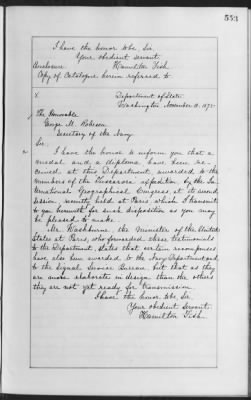 553
I have the honor to be, Sir,
Your obedient servant,
Enclosure. Hamilton Fish
Copy of Catalogue herein referred to.
Department of State
Washington, November 18, 187
The Honorable
George M. Robeson
Secretary of the Navy
Sir:
I have the honor to inform you that a
medal and a diploma have been re-
ceived at this Department awarded to the
members of the Tuscarora expedition, by the In-
ternational Geographical Congress at its second
session, recently held at Paris which I transmit
to you herewith for such disposition as you may
be pleased to make.
Mr. Washburne, the Minister of the United
States at Paris, who forwarded these testimonials
to the Department, states that certain recompenses
have also been awarded to the Navy Department, and
to the Signal Service Bureau, but that as they
are more elaborate in design than the others
they are not yet ready for transmission.
I have the honor to be, Sir,
Your obedient servant,
Hamilton Fish